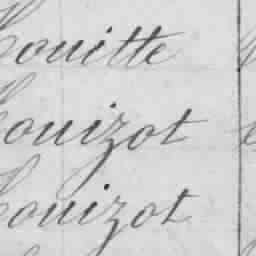 Houitte
Houizot
Houizot